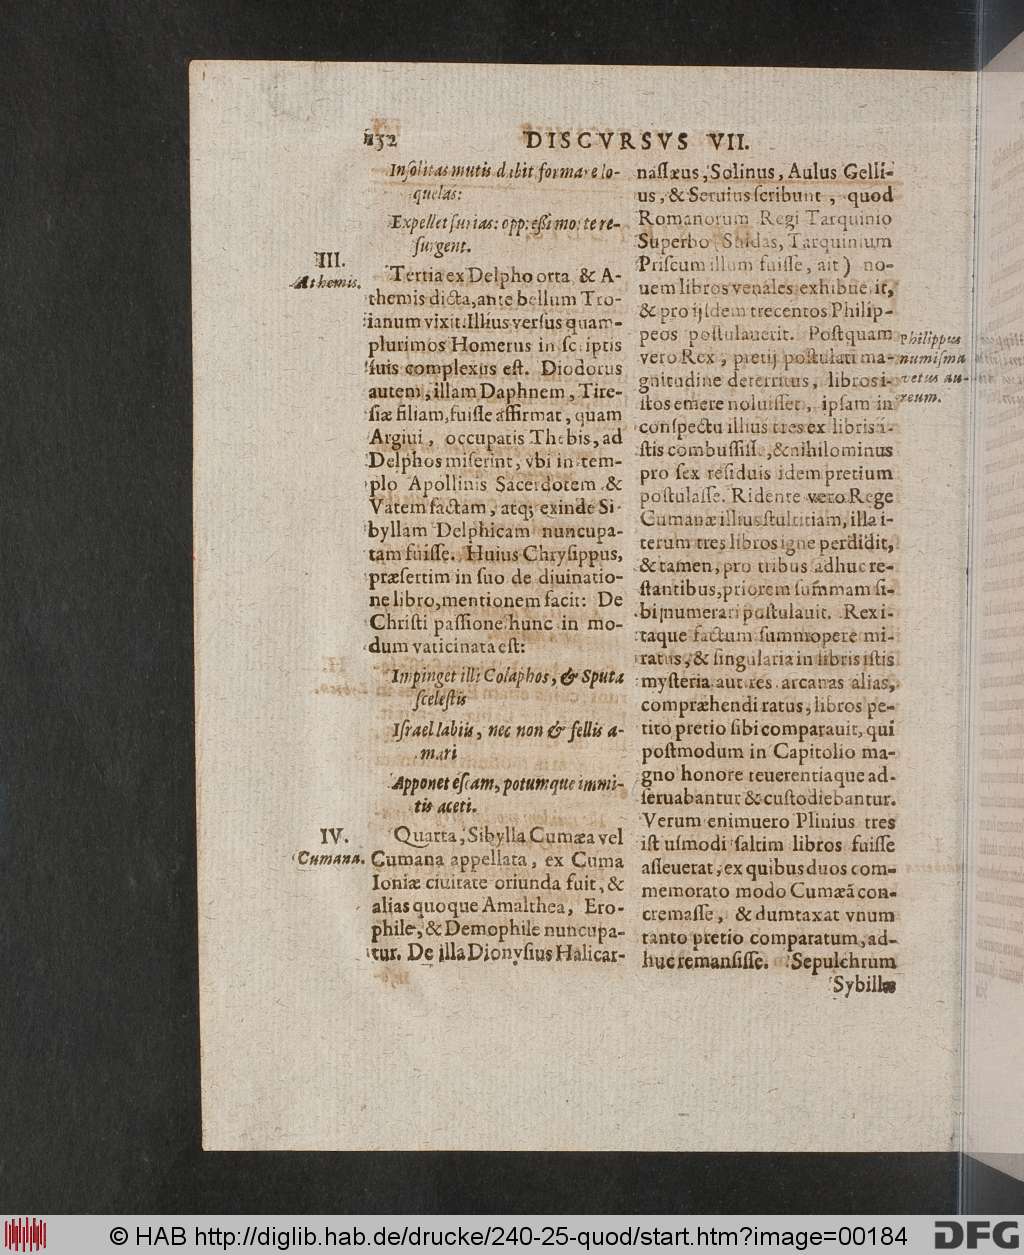 132 DISCVRSVS VII.
Inſolitas mutis dabit formare lo-
quelas:
Expellet furias: oppreſſi morte re-
ſurgent.
III.
Athemis.
Tertia ex Delpho orta & A-
themis dicta, ante bellum Tro-
ianum vixit. Illius verſus quam-
plurimos Homerus in ſcriptis
ſuis complexus eſt. Diodorus
autem, illam Daphnem, Tire-
ſiæ filiam, fuiſſe affirmat, quam
Argiui, occupatis Thebis, ad
Delphos miſerint, vbi in tem-
plo Apollinis Sacerdotem &
Vatem factam, atq; exinde Si-
byllam Delphicam nuncupa-
tam fuiſſe. Huius Chryſippus,
præſertim in ſuo de diuinatio-
ne libro, mentionem facit: De
Chriſti paſſione hunc in mo-
dum vaticinata eſt:
Impinget illi Colaphos, & Sputa
ſceleſtis
Iſrael labiis, nec non & fellis a-
mari
Apponet eſcam, potumque immi-
tis aceti.
IV.
Cumana.
Quarta, Sibylla Cumæa vel
Cumana appellata, ex Cuma
Ioniæ ciuitate oriunda fuit, &
alias quoque Amalthea, Ero-
phile, & Demophile nuncupa-
tur. De illa Dionyſius Halicar-
naſſæus, Solinus, Aulus Gelli-
us, & Seruius ſcribunt, quod
Romanorum Regi Tarquinio
Superbo (Suidas, Tarquinium
Priſcum illum fuiſſe, ait) no-
uem libros venales exhibuerit,
& pro ijſdem trecentos Philip-
peos poſtulauerit. Poſtquam
vero Rex, pretij poſtulati ma-
gnitudine deterritus, libros i-
ſtos emere noluiſſet, ipſam in
conſpectu illius tres ex libris i-
ſtis combuſſiſſe, & nihilominus
pro ſex reſiduis idem pretium
poſtulaſſe. Ridente vero Rege
Cumanæ illius ſtultitiam, illa i-
terum tres libros igne perdidit,
& tamen, pro tribus adhuc re-
ſtantibus, priorem ſum̃mam ſi-
bi numerari poſtulauit. Rex i-
taque factum ſummopere mi-
ratus, & ſingularia in libris iſtis
myſteria aut res arcanas alias,
compræhendi ratus, libros pe-
tito pretio ſibi comparauit, qui
poſtmodum in Capitolio ma-
gno honore reuerentiaque ad-
ſeruabantur & cuſtodiebantur.
Verum enimuero Plinius tres
iſt uſmodi ſaltim libros fuiſſe
aſſeuerat, ex quibus duos com-
memorato modo Cumæã con-
cremaſſe, & dumtaxat vnum
tanto pretio comparatum, ad-
huc remanſiſſe. Sepulchrum
Sybillæ
Philippus
numiſma
vetus au-
reum.
© HAB http://diglib.hab.de/drucke/240-25-quod/start.htm?image=00184
DFG